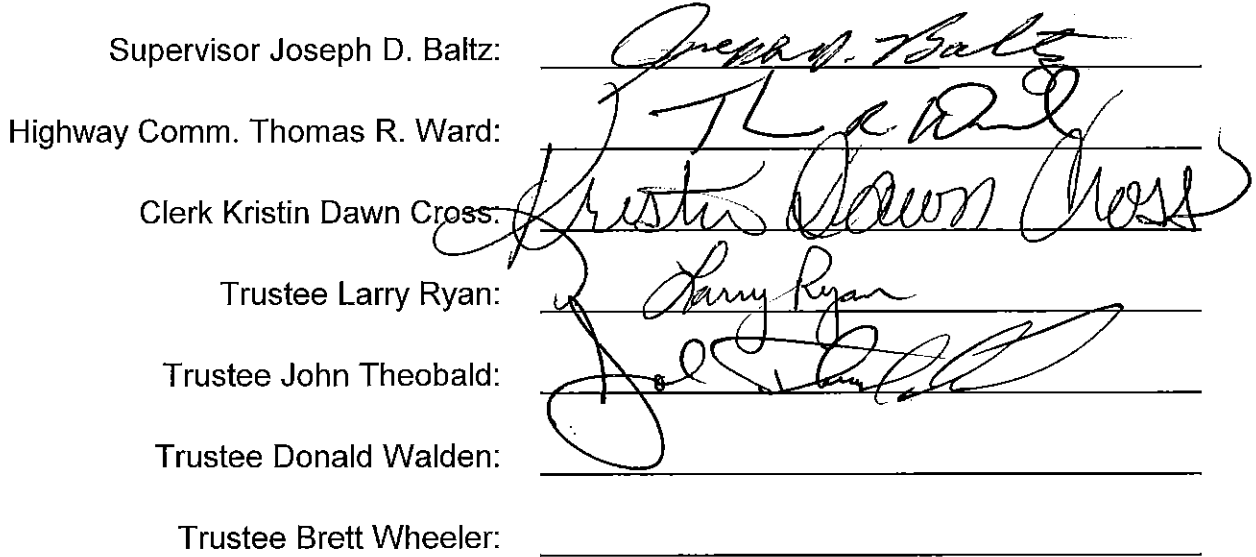 Supervisor Joseph D. Baltz: Joseph D. Baltz
Highway Comm. Thomas R. Ward: Th R Ward
Clerk Kristin Dawn Cross: Kristin Dawn Cross
Trustee Larry Ryan: Larry Ryan
Trustee John Theobald:
Trustee Donald Walden:
Trustee Brett Wheeler: